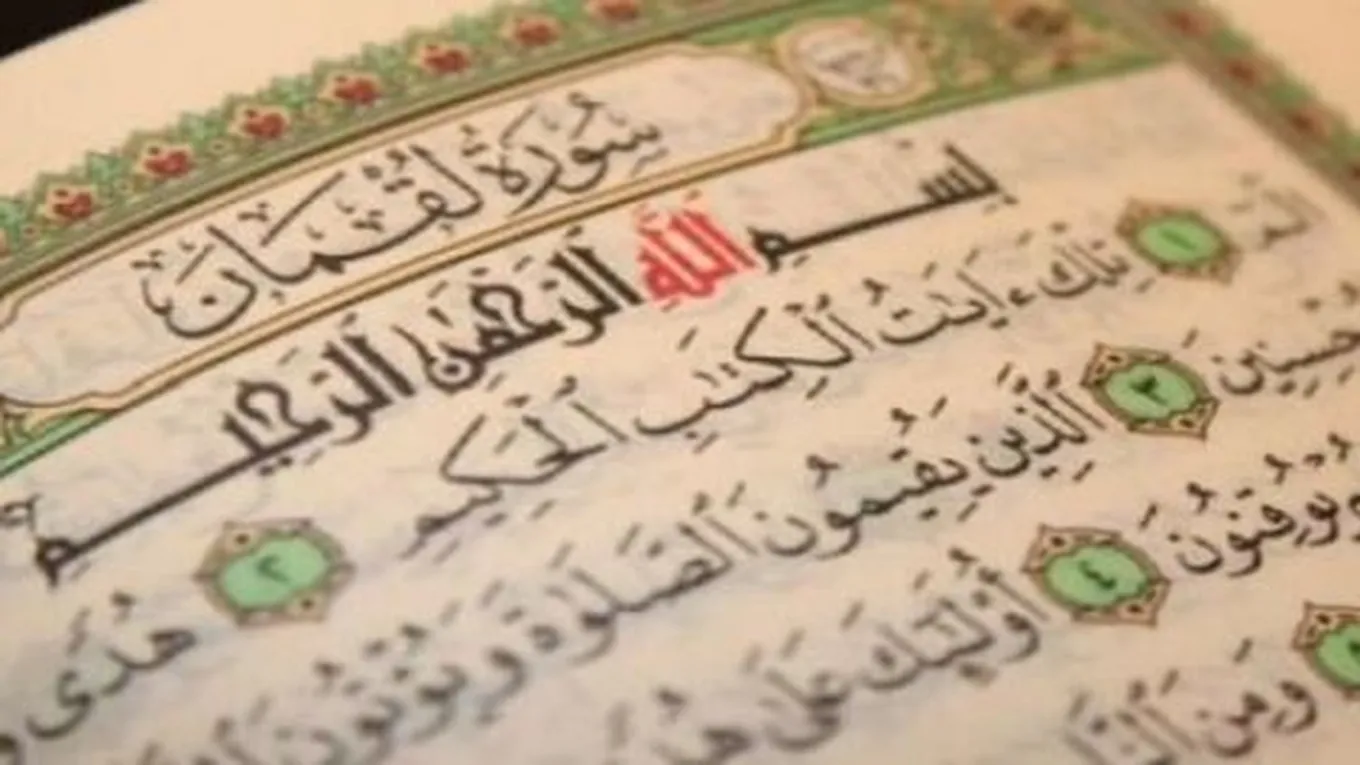 سُورَةُ لُقْمَانَ
بِسْمِ اللَّهِ الرَّحْمَٰنِ الرَّحِيمِ
الٓمٓ ١ تِلْكَ ءَايَٰتُ ٱلْكِتَٰبِ ٱلْحَكِيمِ ٢ هُدًى
ٱلَّذِينَ يُقِيمُونَ ٱلصَّلَوٰةَ وَيُؤْتُونَ
٣
يُوقِنُونَ ٤ أُو۟لَٰٓئِكَ عَلَىٰ هُدًى
وَمِنَ